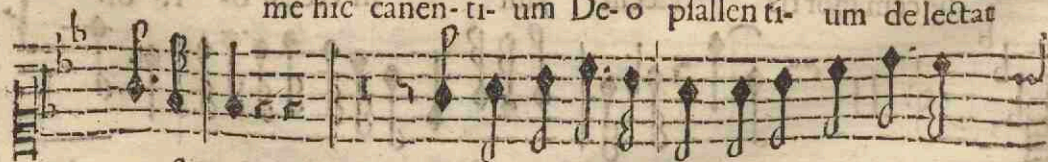 me hic canen- ti- um De- o psallen ti- um delectat